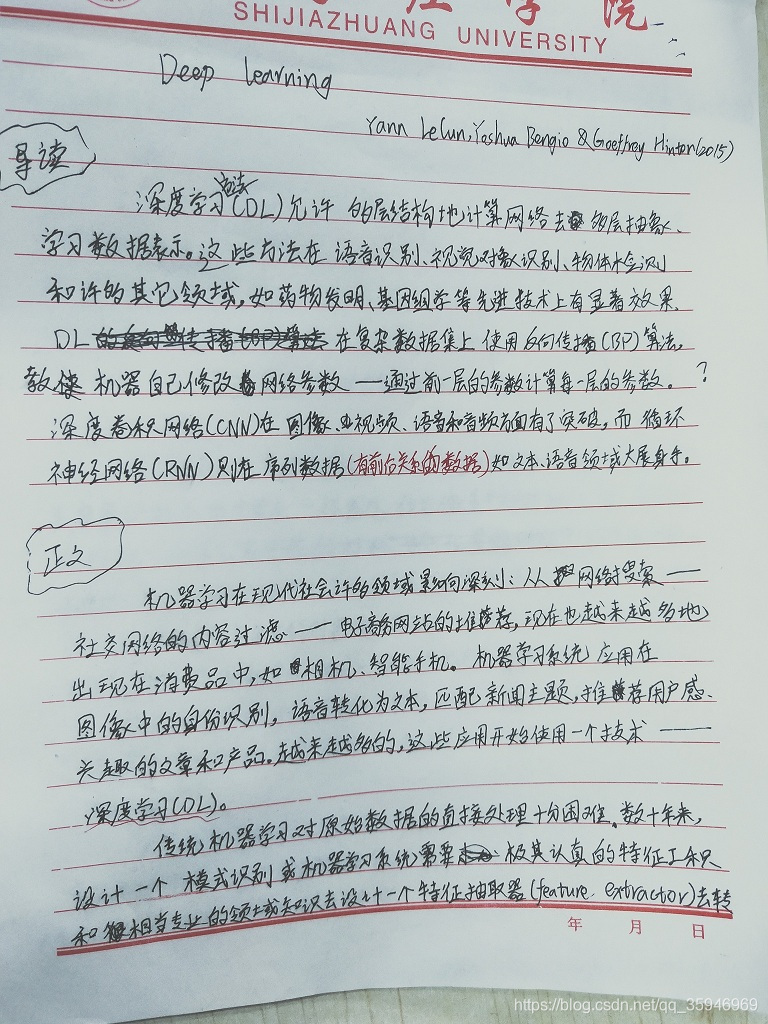 学院
SHIJIAZHUANG UNIVERSITY
Deep learning
Yann LeCun, Yoshua Bengio & Goeffroy Hinton(2015)
导读
深度学习(DL)允许 的层结构地计算网络去多层抽象、
学习数据表示。这些方法在 语音识别、视觉对象识别、物体检测
和许的其它领域,如药物发明、基因组学等先进技术上有显著效果.
DL 在复杂数据集上 使用反向传播(BP)算法,
教 机器自己修改 网络参数 —通过前一层的参数计算每一层的参数. ?
深度卷积网络(CNN)在 图像、视频、语音和音频方面有了突破,而 循环
神经网络(RNN)则在 序列数据(有前后关系的数据)如文本、语音领域大展身手。
正文
机器学习在现代社会许多领域影响深刻:从 网络搜索 —
社交网络的内容过滤 — 电子商务网站的推荐,现在也越来越多地
出现在消费品中,如 相机、智能手机。 机器学习系统 应用在
图像中的身份识别, 语音转化为文本, 匹配新闻主题,推荐用户感、
兴趣的文章和产品。越来越多的,这些应用开始使用一个技术 ——
深度学习(DL)。
传统机器学习对原始数据的直接处理十分困难.数十年来,
设计一个 模式识别 或机器学习系统需要 极其认真的特征工程
和 相当专业的领域知识去设计一个特征抽取器(feature extractor)去转
年 月 日
https://blog.csdn.net/qq_35946969